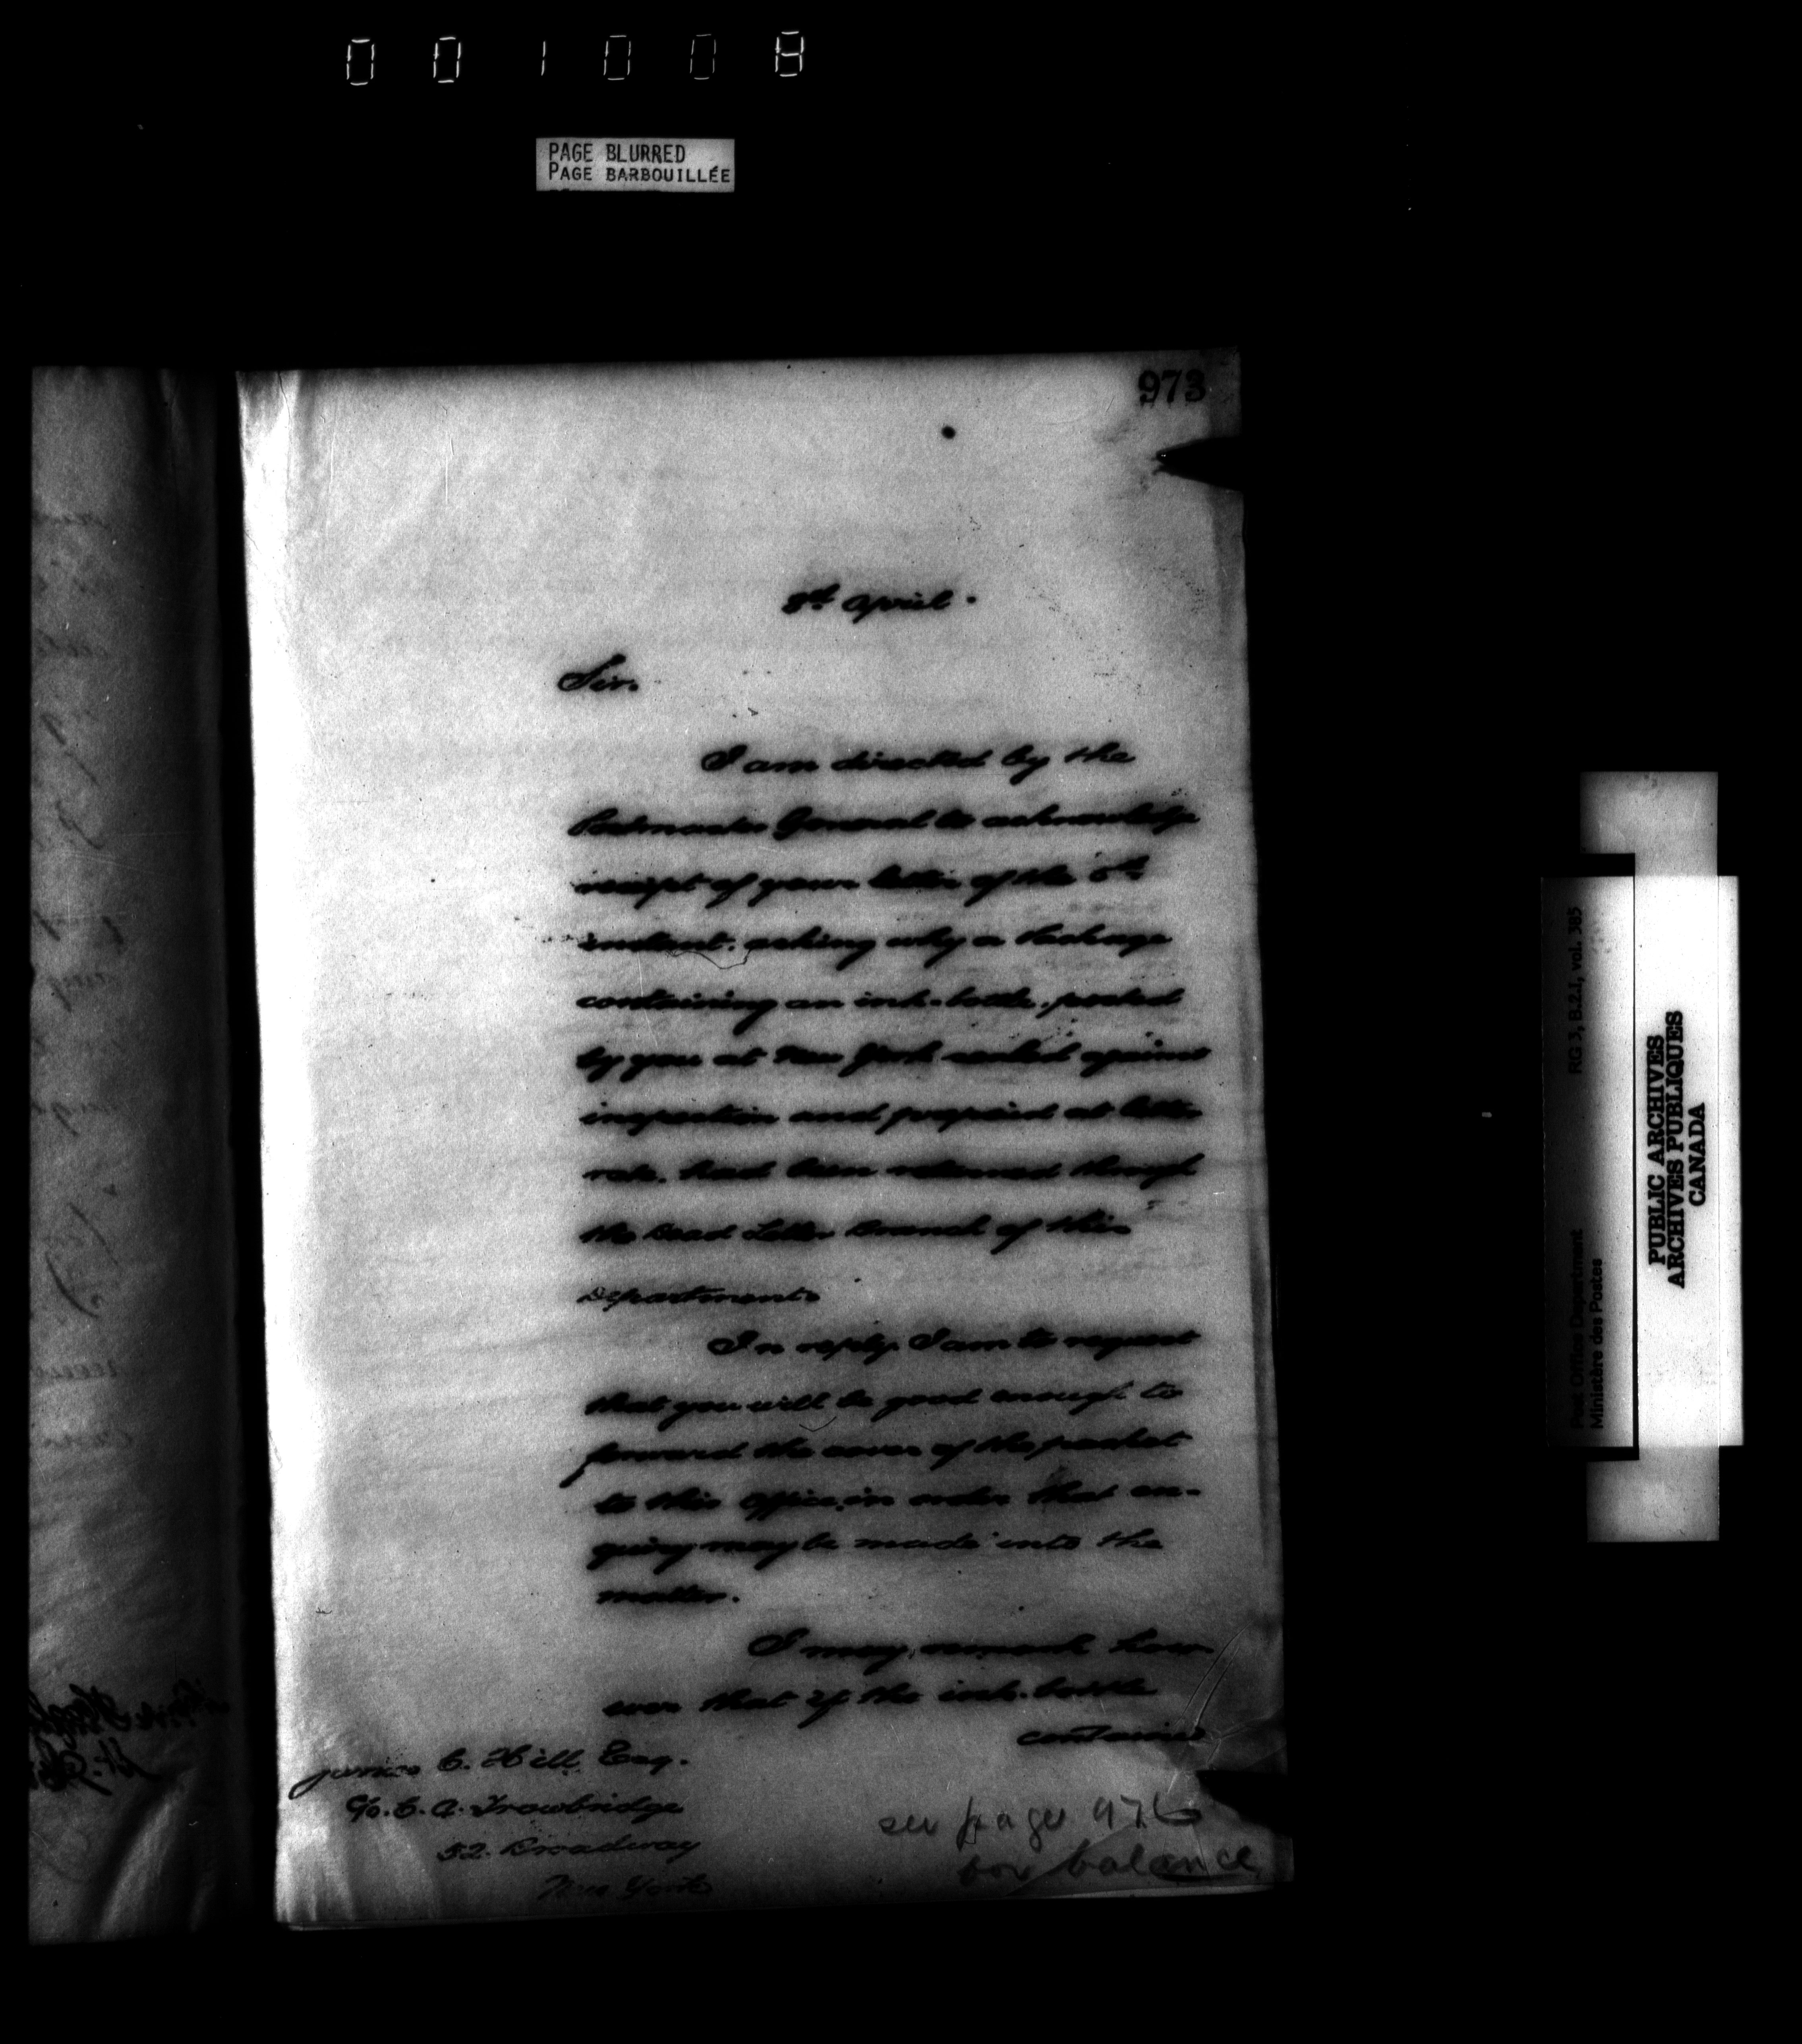 001008
PAGE BLURRED
PAGE BARBOUILLÉE
973
8th April.
Sir.
I am directed by the
Postmaster General to acknowledge
receipt of your letter of the
instant. asking why a Package
containing an ink-bottle. posted
by you at New York sealed against
inspection and prepaid at letter
rate. had been returned through
the Dead Letter Branch of this
Department.
In reply. I am to request
that you will be good enough to
forward the cover of the packet
to this Office, in order that en-
quiry may be made into the
matter.
I may, remark how-
ever that if the ink-bottle
contained
James C. Hill Esq.
c/o. C. A. Trowbridge
52. Broadway
New York
see page 976
for balance
RG 3, B.2.1, vol. 385
Post Office Department
Ministère des Postes
PUBLIC ARCHIVES
ARCHIVES PUBLIQUES
CANADA